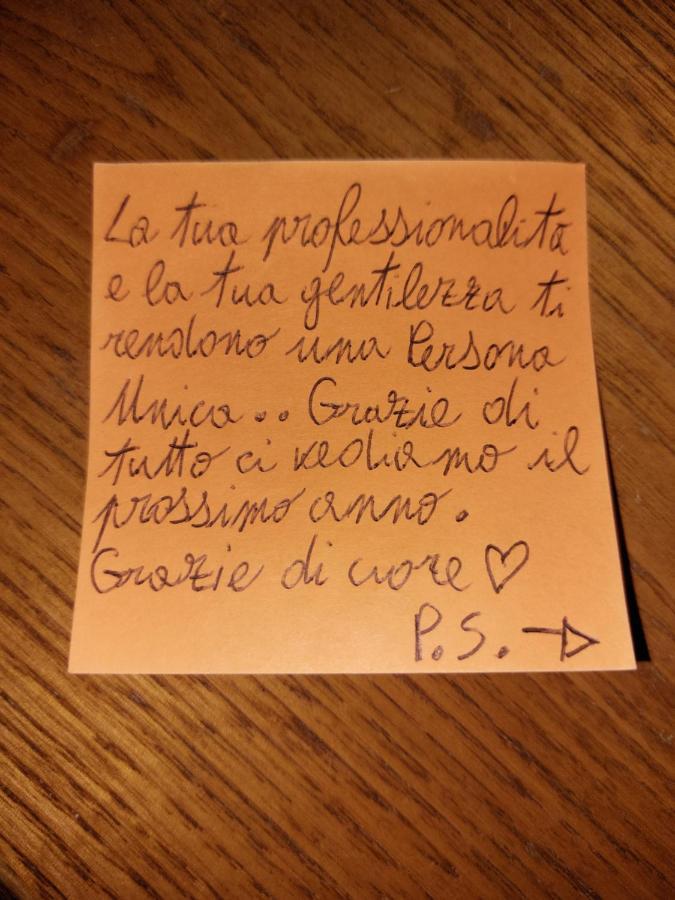 La tua professionalità
e la tua gentilezza ti
rendono una Persona
Unica.. Grazie di
tutto ci vediamo il
prossimo anno.
Grazie di cuore ♡
P.S. →